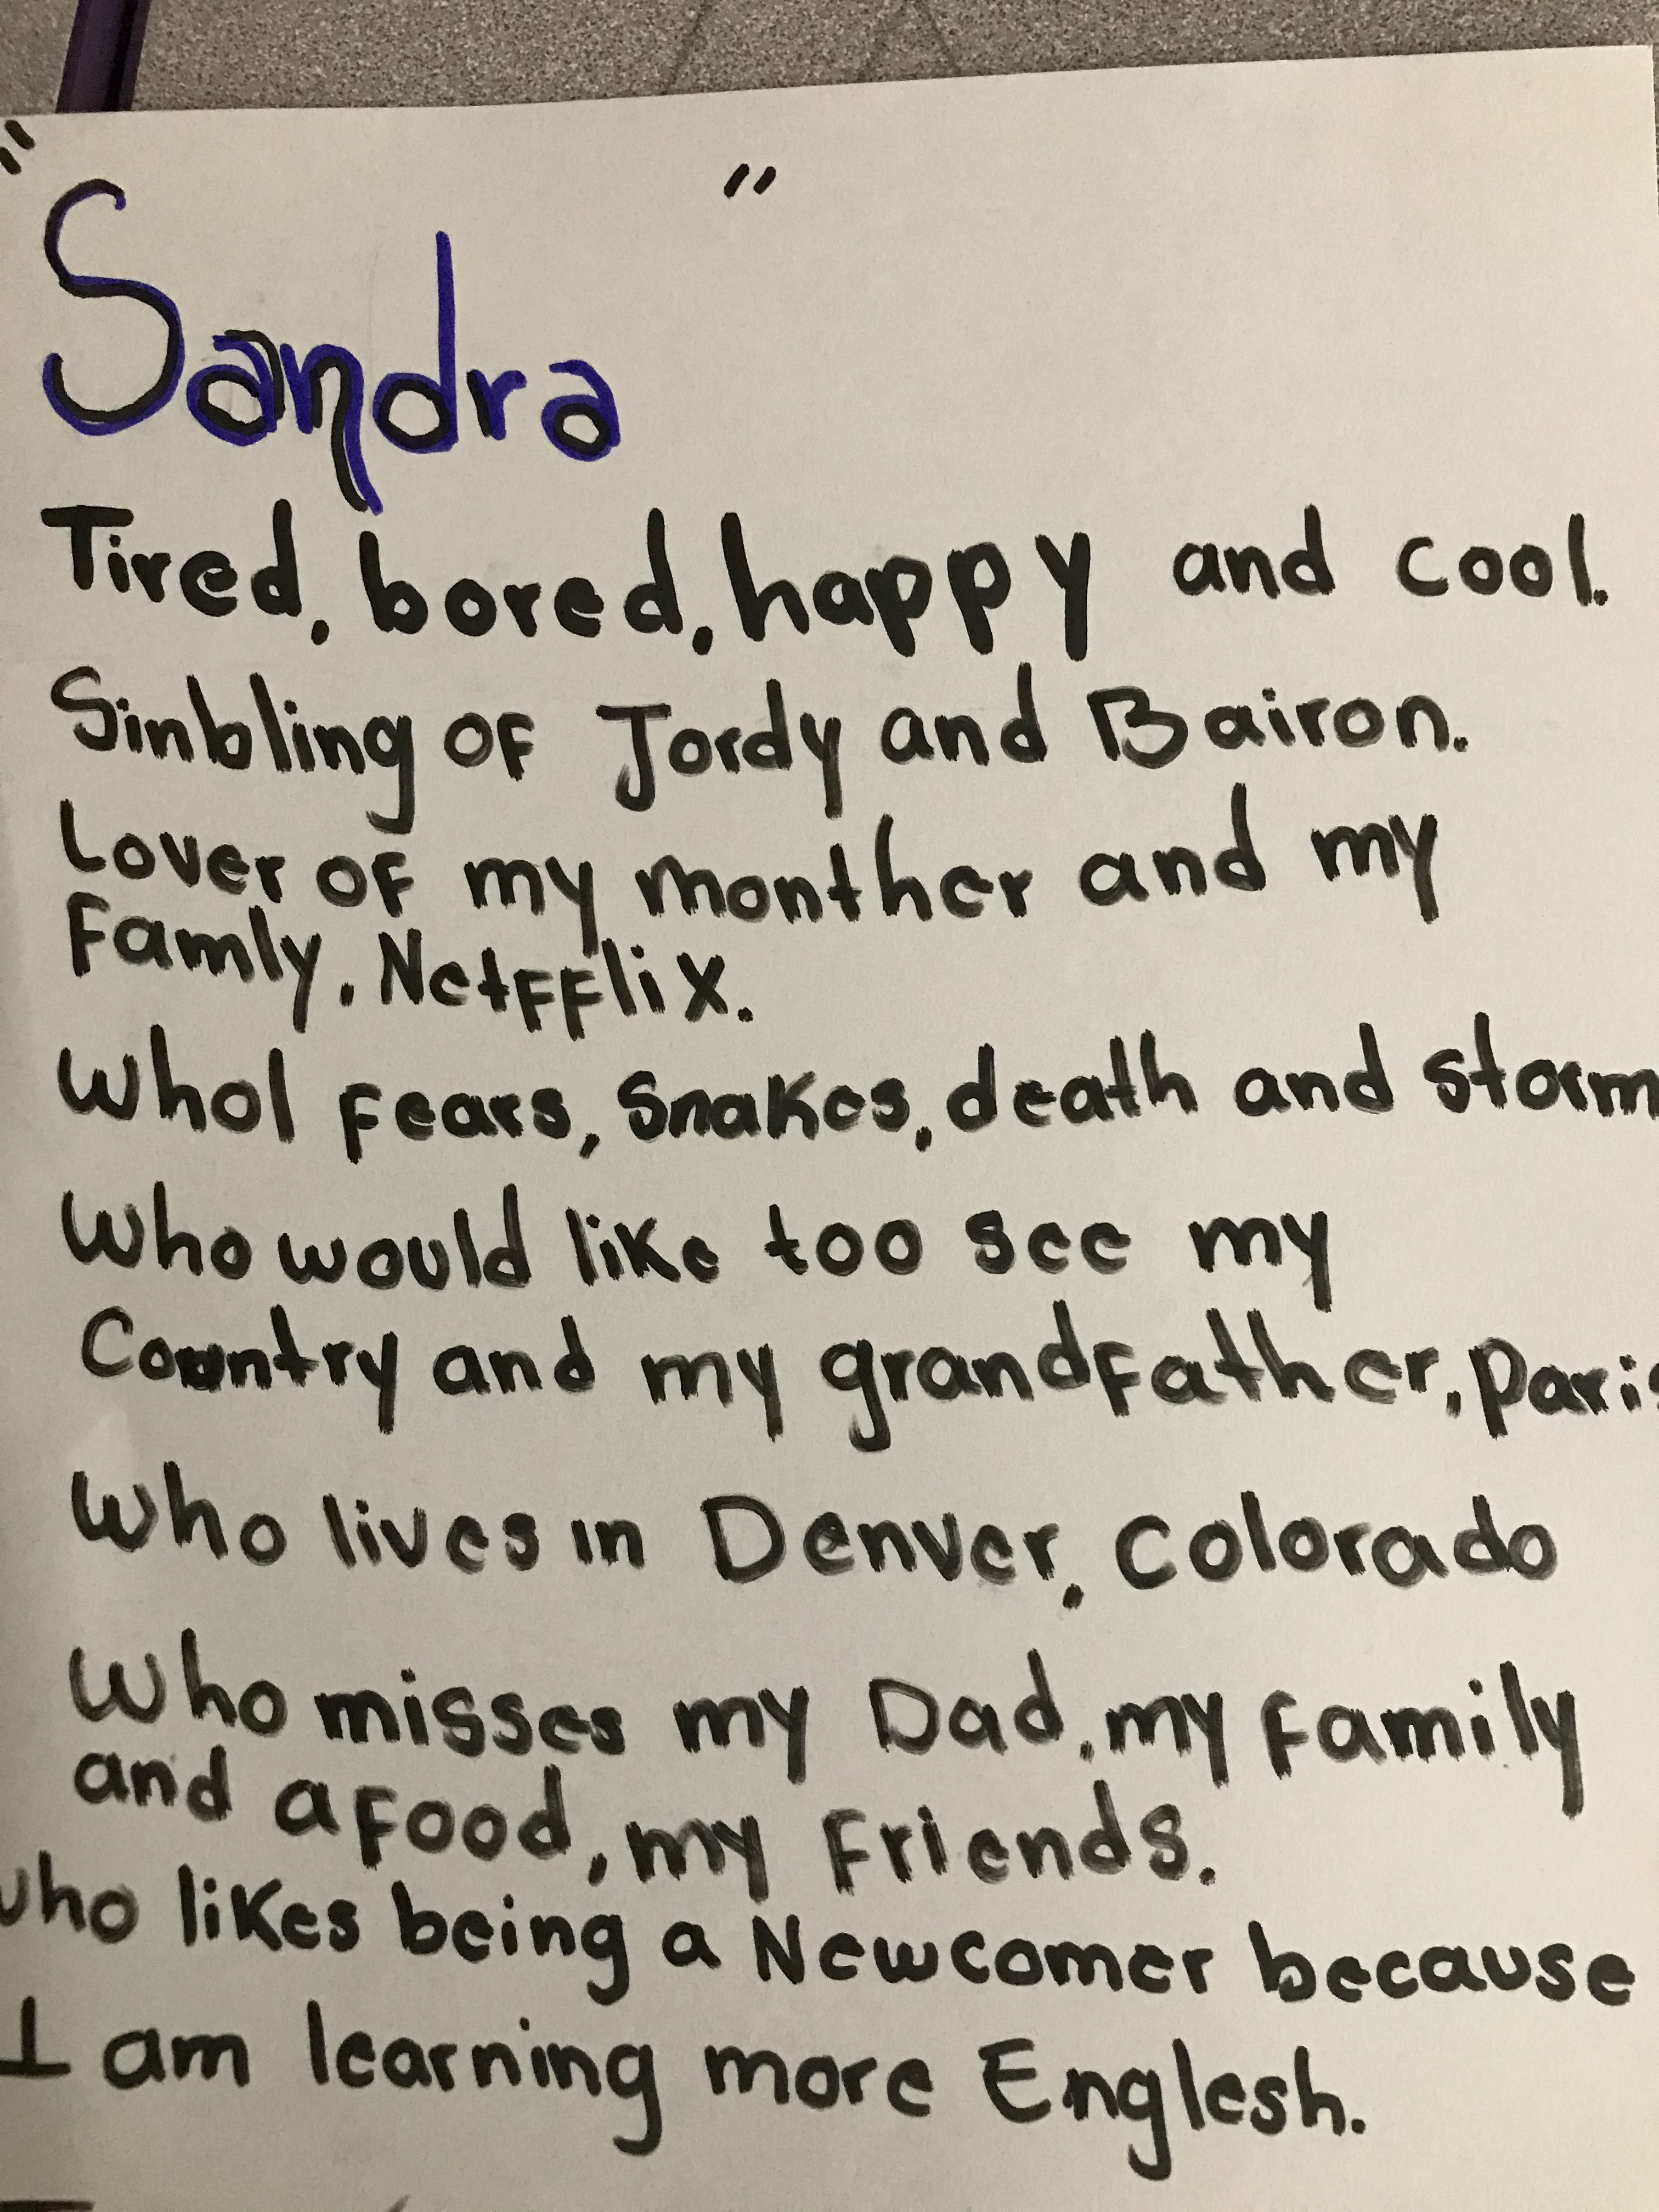 "Sandra"
Tired, bored, happy and cool.
Sinbling of Jordy and Bairon.
Lover of my monther and my
Famly. Netfflix.
Whol fears, Snakes, death and storm
Who would like too see my
Country and my grandfather, Paris
Who lives in Denver, Colorado
Who misses my Dad, my family
and a food, my Friends.
who likes being a Newcomer because
I am learning more Englesh.